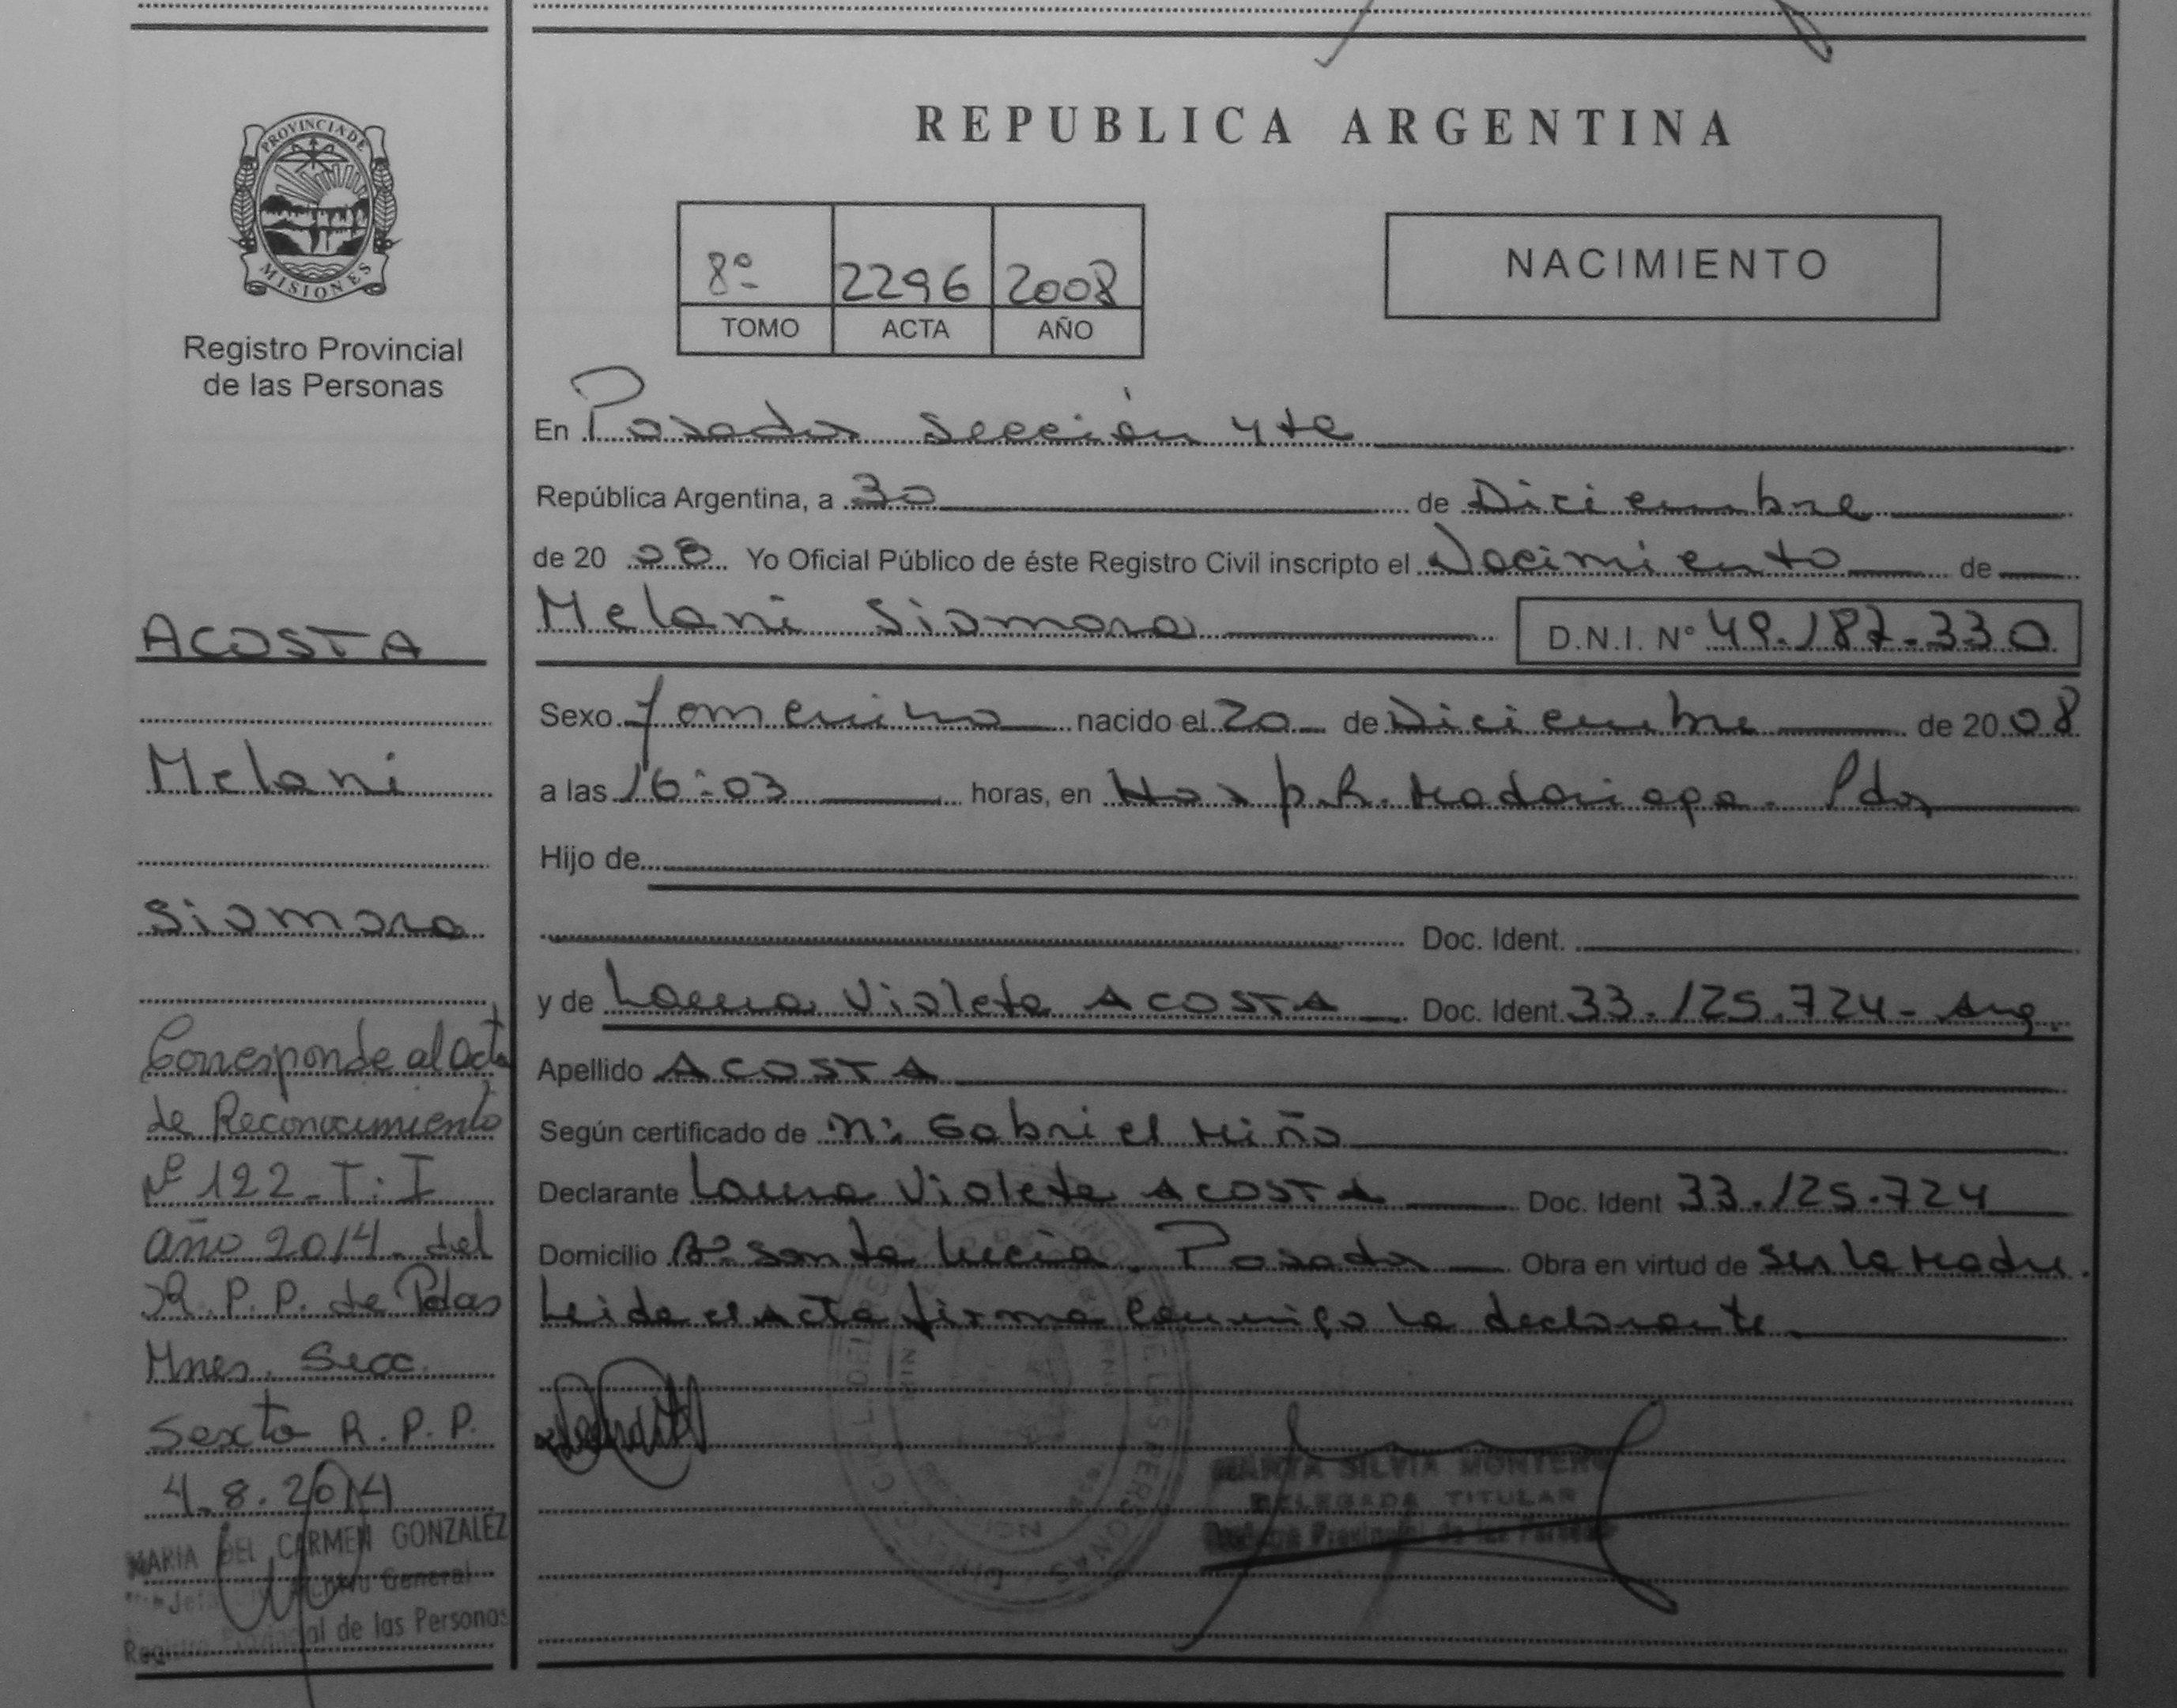 PROVINCIA DE
MISIONES
Registro Provincial
de las Personas
ACOSTA
Melani
Siomara
Corresponde al Acta
de Reconocimiento
Nº 122 - T: I
Año 2014 - del
R.P.P. de Pdas
Mnes. Secc.
Sexta R.P.P.
4.8.2014
MARIA DEL CARMEN GONZALEZ
Archivo General
Registro Provincial de las Personas
REPUBLICA ARGENTINA
8º 2296 2008
TOMO ACTA AÑO
NACIMIENTO
En Posadas Sección 4ta
República Argentina, a 30 de Diciembre
de 20 08 Yo Oficial Público de éste Registro Civil inscripto el Nacimiento de
Melani Siomara D.N.I. Nº 49.187.330
Sexo Femenino nacido el 20 de Diciembre de 20 08
a las 16:03 horas, en Hosp. R. Madariaga. Pdas
Hijo de
Doc. Ident.
y de Laura Violeta ACOSTA Doc. Ident. 33.125.724 - Arg.
Apellido ACOSTA
Según certificado de Gabriel Miño
Declarante Laura Violeta ACOSTA Doc. Ident 33.125.724
Domicilio Bº Santa Lucía, Posadas Obra en virtud de ser la Madre.
Leida el Acta firma conmigo la declarante.
MARTA SILVIA MONTERO
DELEGADA TITULAR
Registro Provincial de las Personas